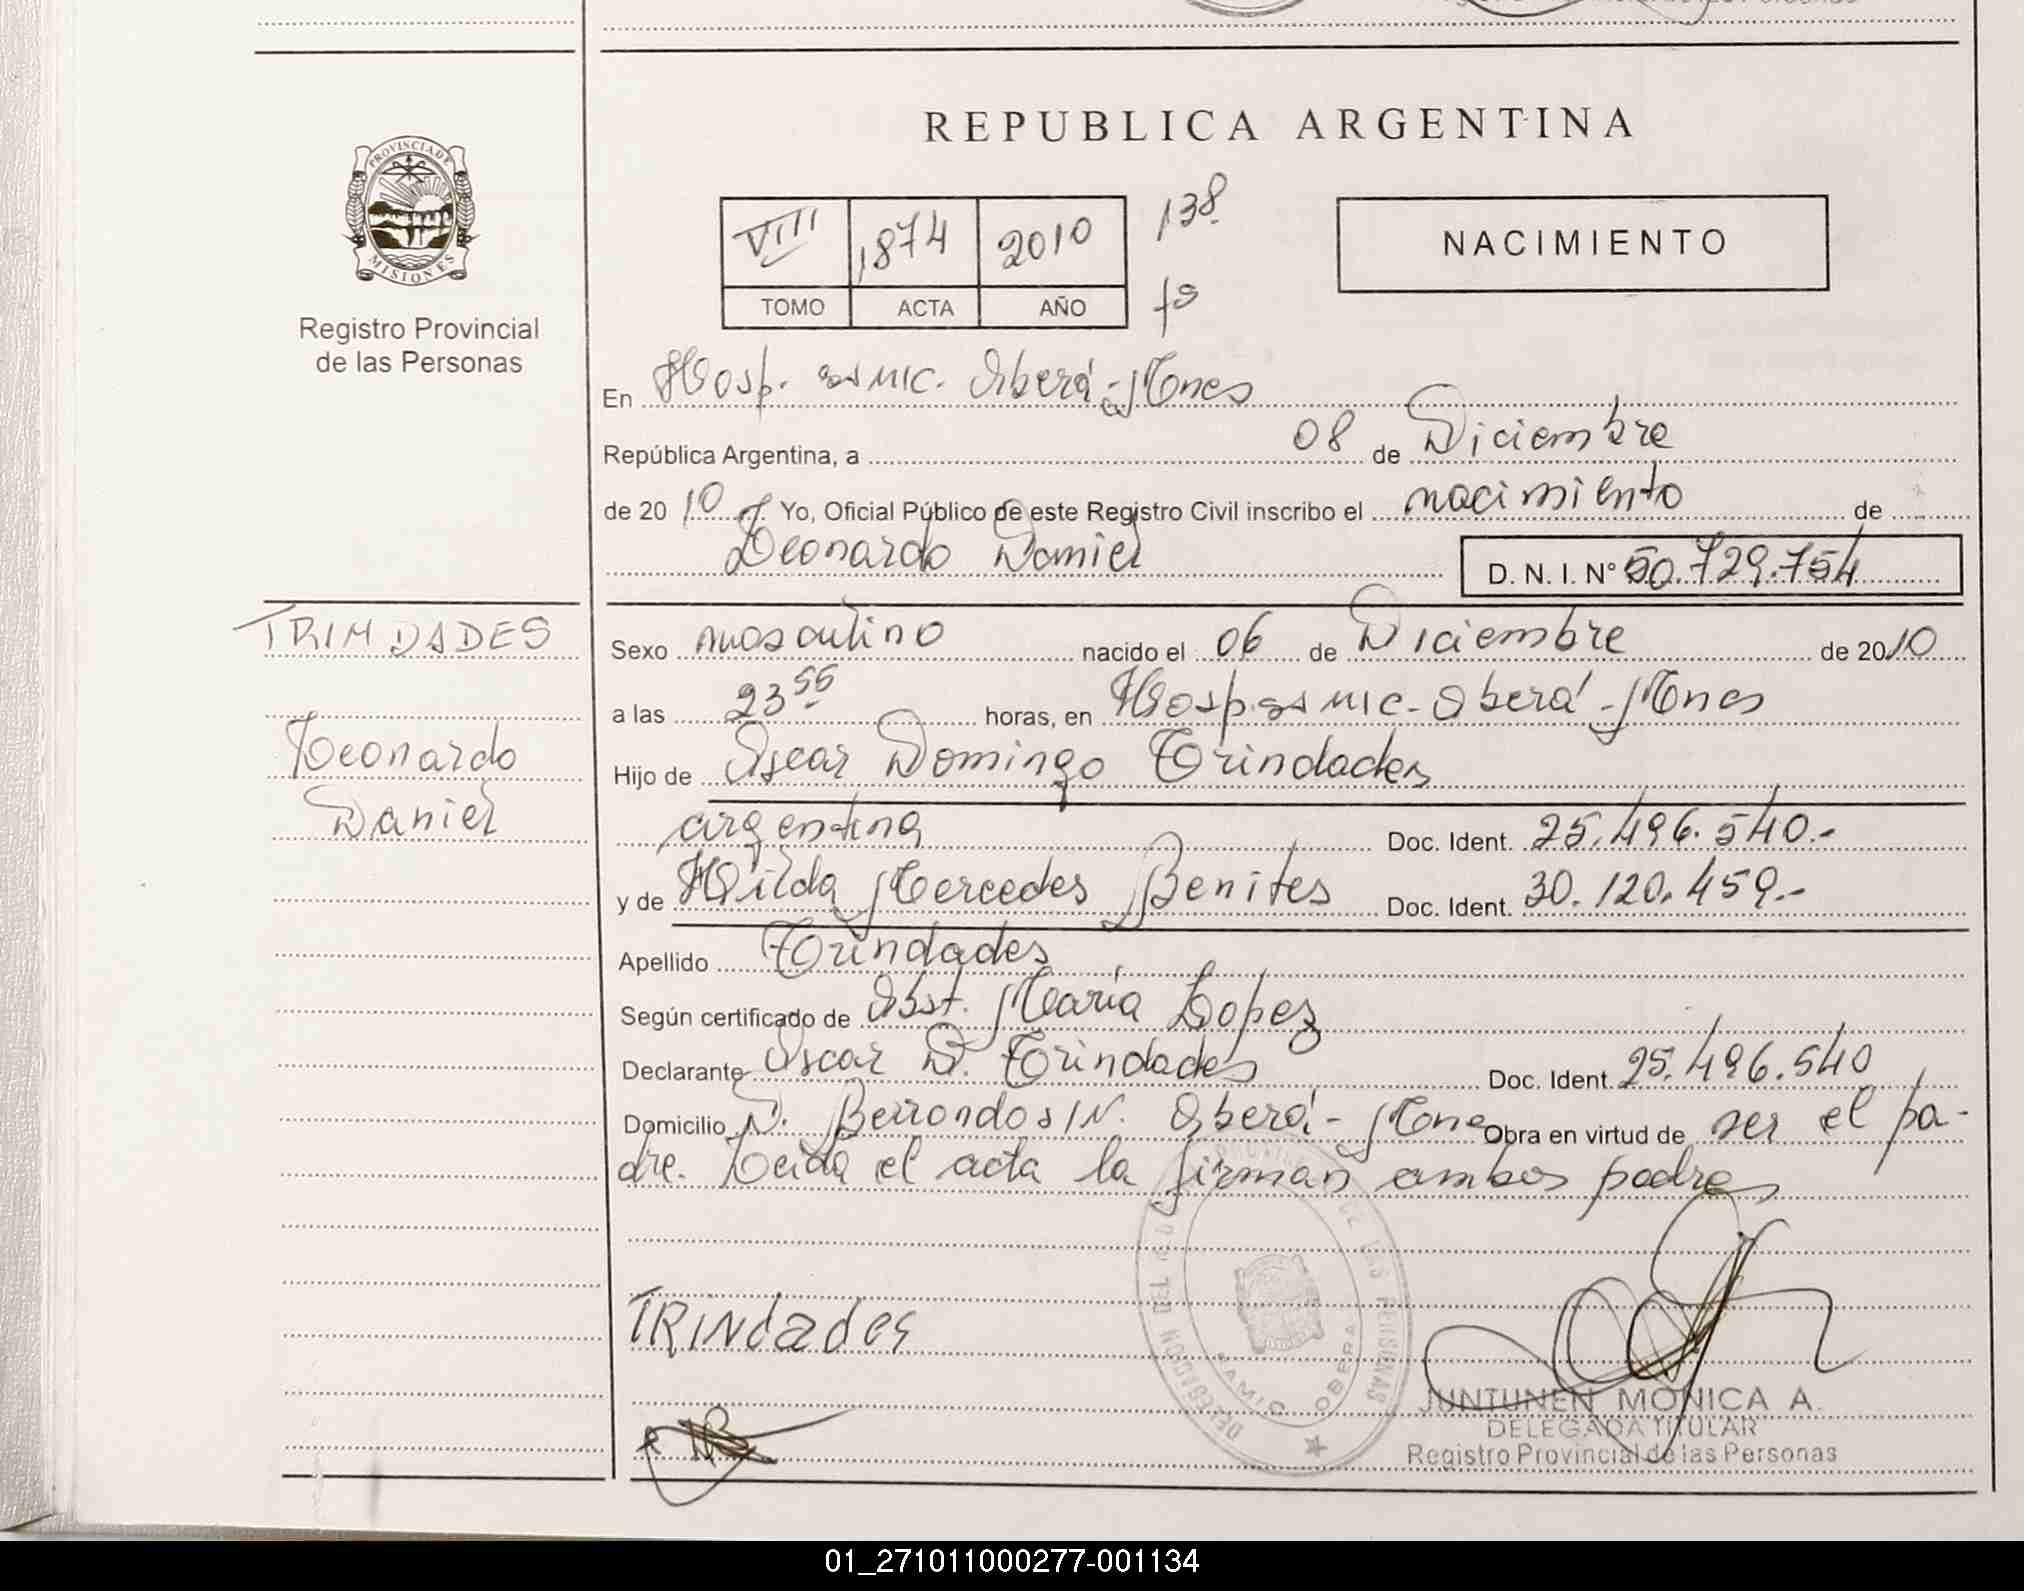 REPUBLICA ARGENTINA
PROVINCIA DE
MISIONES
Registro Provincial
de las Personas
VIII 1874 2010 138
TOMO ACTA AÑO fs
NACIMIENTO
En Hosp. SAMIC. Oberá-Mnes
República Argentina, a 08 de Diciembre
de 2010 Yo, Oficial Público de este Registro Civil inscribo el nacimiento de
Leonardo Daniel D. N. I. N° 50.729.754
TRINDADES
Leonardo
Daniel
Sexo masculino nacido el 06 de Diciembre de 2010
a las 23 55 horas, en Hosp. SAMIC-Oberá-Mnes
Hijo de Oscar Domingo Trindades
argentina Doc. Ident. 25.496.540.-
y de Hilda Mercedes Benites Doc. Ident. 30.120.459.-
Apellido Trindades
Según certificado de Obst. María Lopez
Declarante Oscar D. Trindades Doc. Ident. 25.496.540
Domicilio Berrondo S/N. Oberá-Mnes Obra en virtud de ser el pa-
dre. Leida el acta la firman ambos padres
TRINdades
DELEGACION DEL DE LAS PERSONAS
SAMIC OBERA
JUNTUNEN MONICA A.
DELEGADA TITULAR
Registro Provincial de las Personas
01_271011000277-001134